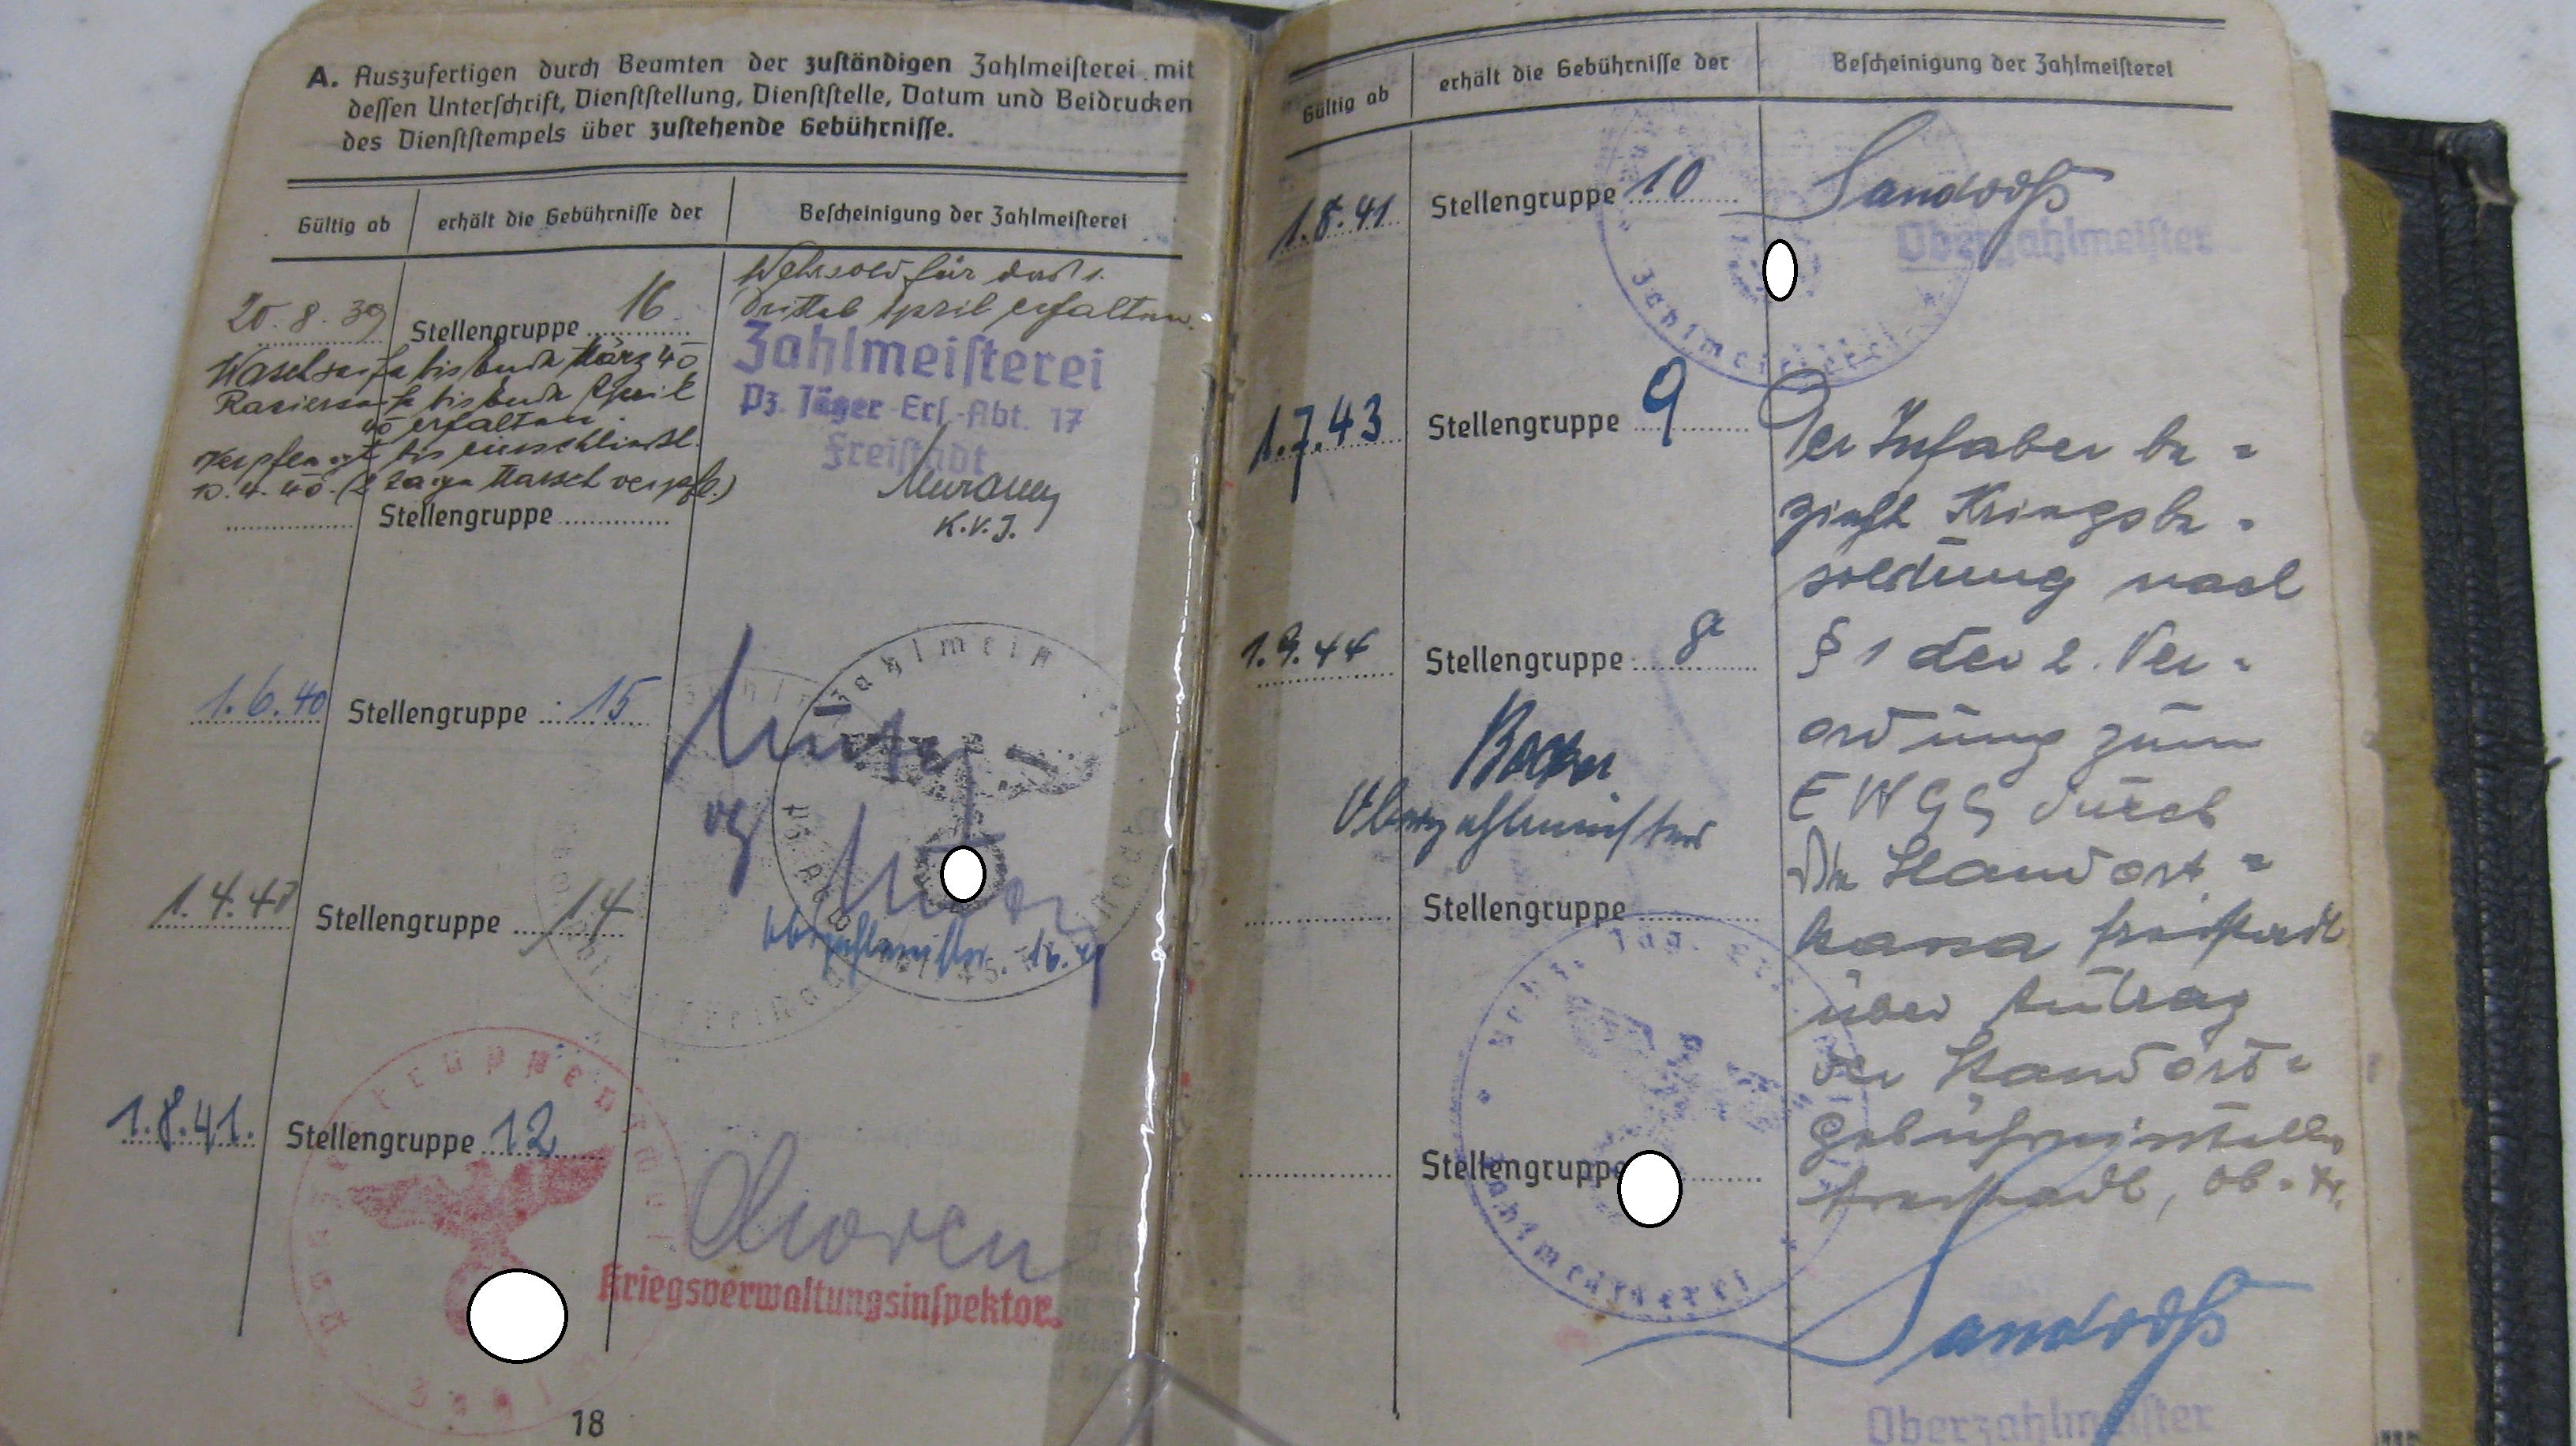 A. Auszufertigen durch Beamten der zuständigen Zahlmeisterei mit
dessen Unterschrift, Dienststellung, Dienststelle, Datum und Beidrucken
des Dienststempels über zustehende Gebührnisse.
Gültig ab erhält die Gebührnisse der Bescheinigung der Zahlmeisterei
Wehrsold für das 1.
Drittel April erhalten.
20.8.39 Stellengruppe 16
Waschseife bis Ende März 40
Rasierseife bis Ende April
40 erhalten.
Verpflegt bis einschliessl.
10.4.40. (2 Tage Marschverpfl.)
Zahlmeisterei
Pz. Jäger-Ers.-Abt. 17
Freistadt
K.V.I.
Stellengruppe
1.6.40 Stellengruppe 15
1.4.41 Stellengruppe 14
Oberzahlmeister
1.8.41. Stellengruppe 12
Kriegsverwaltungsinspektor.
18
Gültig ab erhält die Gebührnisse der Bescheinigung der Zahlmeisterei
1.8.41 Stellengruppe 10
Oberzahlmeister
Zahlmeisterei
1.7.43 Stellengruppe 9
Der Inhaber be=
zieht Kriegsbe=
soldung nach
§ 1 der 2. Ver=
ordnung zum
EWGG durch
die Standort=
kasse Freistadt
über Antrag
der Standort=
gebührnisstelle
Freistadt, Ob.
1.9.44 Stellengruppe 8
Oberzahlmeister
Stellengruppe
Stellengruppe
Zahlmeisterei
Oberzahlmeister